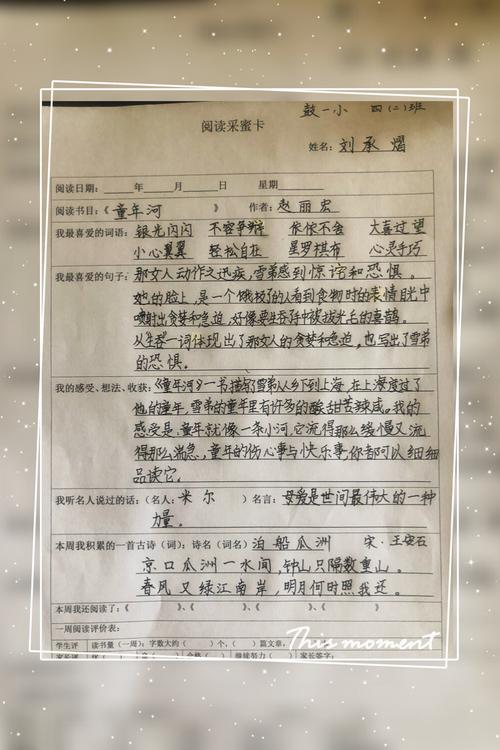 鼓一小 四(二)班
阅读采蜜卡
姓名: 刘承熠
阅读日期: 年 月 日 星期
阅读书目《童年河》 作者: 赵丽宏
我最喜爱的词语: 银光闪闪 不容争辩 依依不舍 大喜过望
小心翼翼 轻松自在 星罗棋布 心灵手巧
我最喜爱的句子: 那女人动作之迅疾,雪弟感到惊讶和恐惧。
她的脸上,是一个饿极了的人看到食物时的表情,目光中
喷射出贪婪和急迫,好像要生吞手中被拔光毛的喜鹊。
从生吞一词体现出了那女人的贪婪和急迫,也写出了雪弟
的恐惧。
我的感受、想法、收获:《童年河》一书描写了雪弟从乡下到上海,在上海度过了
他的童年,雪弟的童年里有许多的酸甜苦辣咸。我的
感受是,童年就像一条小河,它流得那么缓慢又流
得那么湍急,童年的伤心事与快乐事,你都可以细细
品读它。
我听名人说过的话:(名人: 米尔 )名言: 母爱是世间最伟大的一种
力量。
本周我积累的一首古诗(词): 诗名(词名) 泊船瓜洲 宋·王安石
京口瓜洲一水间,钟山只隔数重山。
春风又绿江南岸,明月何时照我还。
本周我还阅读了:《 》、《 》、《 》、《 》
一周阅读评价表:
学生评 读书量(一周):字数大约( )个,( )篇文章,
This moment
家长评 优( ) 良( ) 合格( ) 继续努力( ) 家长签字: